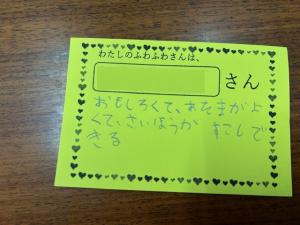 わたしのふわふわさんは、
さん
おもしろくて、あたまがよ
くて、さいほうが すこしで
きる